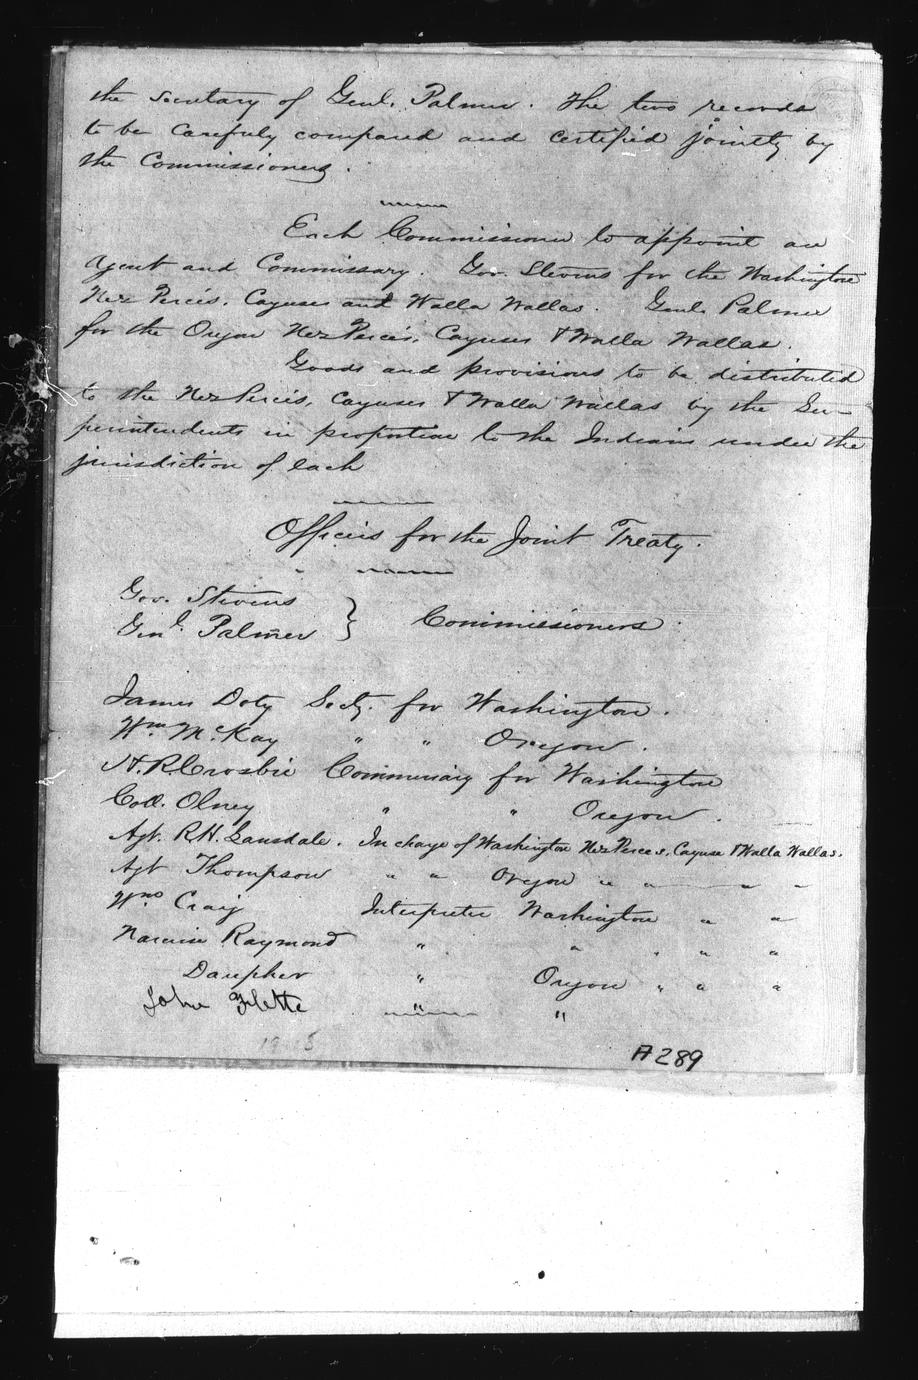 the Secretary of Genl. Palmer. The two records
to be carefuly compared and certified jointly by
the Commissioners.
Each Commissioner to appoint an
Agent and Commissary. Gov. Stevens for the Washington
Nez Percés, Cayuses and Walla Wallas. Genl. Palmer
for the Oregon Nez Percés, Cayuses & Walla Wallas.
Goods and provisions to be distributed
to the Nez Percés, Cayuses & Walla Wallas by the Su-
perintendents in proportion to the Indians under the
jurisdiction of each
Officers for the Joint Treaty.
Gov. Stevens
Genl. Palmer } Commissioners.
James Doty Secty. for Washington.
Wm. McKay " " Oregon.
N. R. Crosbie Commissary for Washington
Col. Olney " " Oregon.
Agt. R.H. Lansdale. In charge of Washington Nez Perces, Cayuse & Walla Wallas.
Agt Thompson " " Oregon " " " "
Wm. Craig Interpreter Washington " "
Narcisse Raymond " " " " "
Daupher " Oregon " " "
John " "
A289